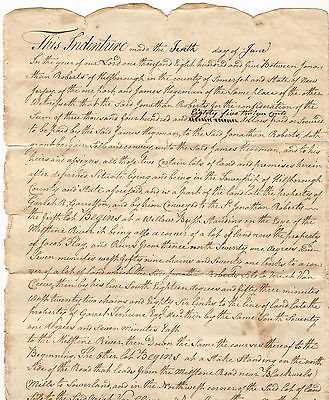 This Indenture made the Tenth day of June
In the year of our Lord one thousand Eight hundred and five Between Jona
than Roberts of Hillsborough in the county of Somerset and State of New
Jersey of the one part and James Hegeman of the Same place of the other
Witnesseth that the said Jonathan Roberts for the consideration of the
Eighty five
Sum of three thousand four hundred and Dollars paid or secured
to be paid by the Said James Hegeman, to the Said Jonathan Roberts, doth
grant bargain Sell and convey unto the Said James Hegeman, and to his
heirs and assigns, all those two Certain lots of Land and premises herein
after described Situate Lying and being in the Township of Hillsborough
County and State aforesaid and is a part of the Land late the property of
Garish R. Garretson, and by him Conveyed to the Sd. Jonathan Roberts
the first Lot Begins at a Willow Bush Standing on the East of the
Millstone River it being allso a corner of a lot of Land now the property
of Jacob Flag, and Runs from thence north Seventy one degrees and
Seven minutes west fifty nine chains and Seventy one links to a corner
of a lot of land which the Said Jonathan Roberts Sold to
thence along his line South Eighteen degrees and fifty three minutes
West twenty two chains and Eighty Six links to the line of Land late the
property of Garret Terhune Esq. decd. then by the Same South Seventy
one degrees and Seven minutes East
to the Millstone River, then Down the Same the courses thereof to the
Beginning. The Other lot Begins at a Stake Standing on the north
Side of the Road that leads from the Millstone Road near Blackwels
Mills to Sourland, and in the Northwest corner of the Said lot of Land